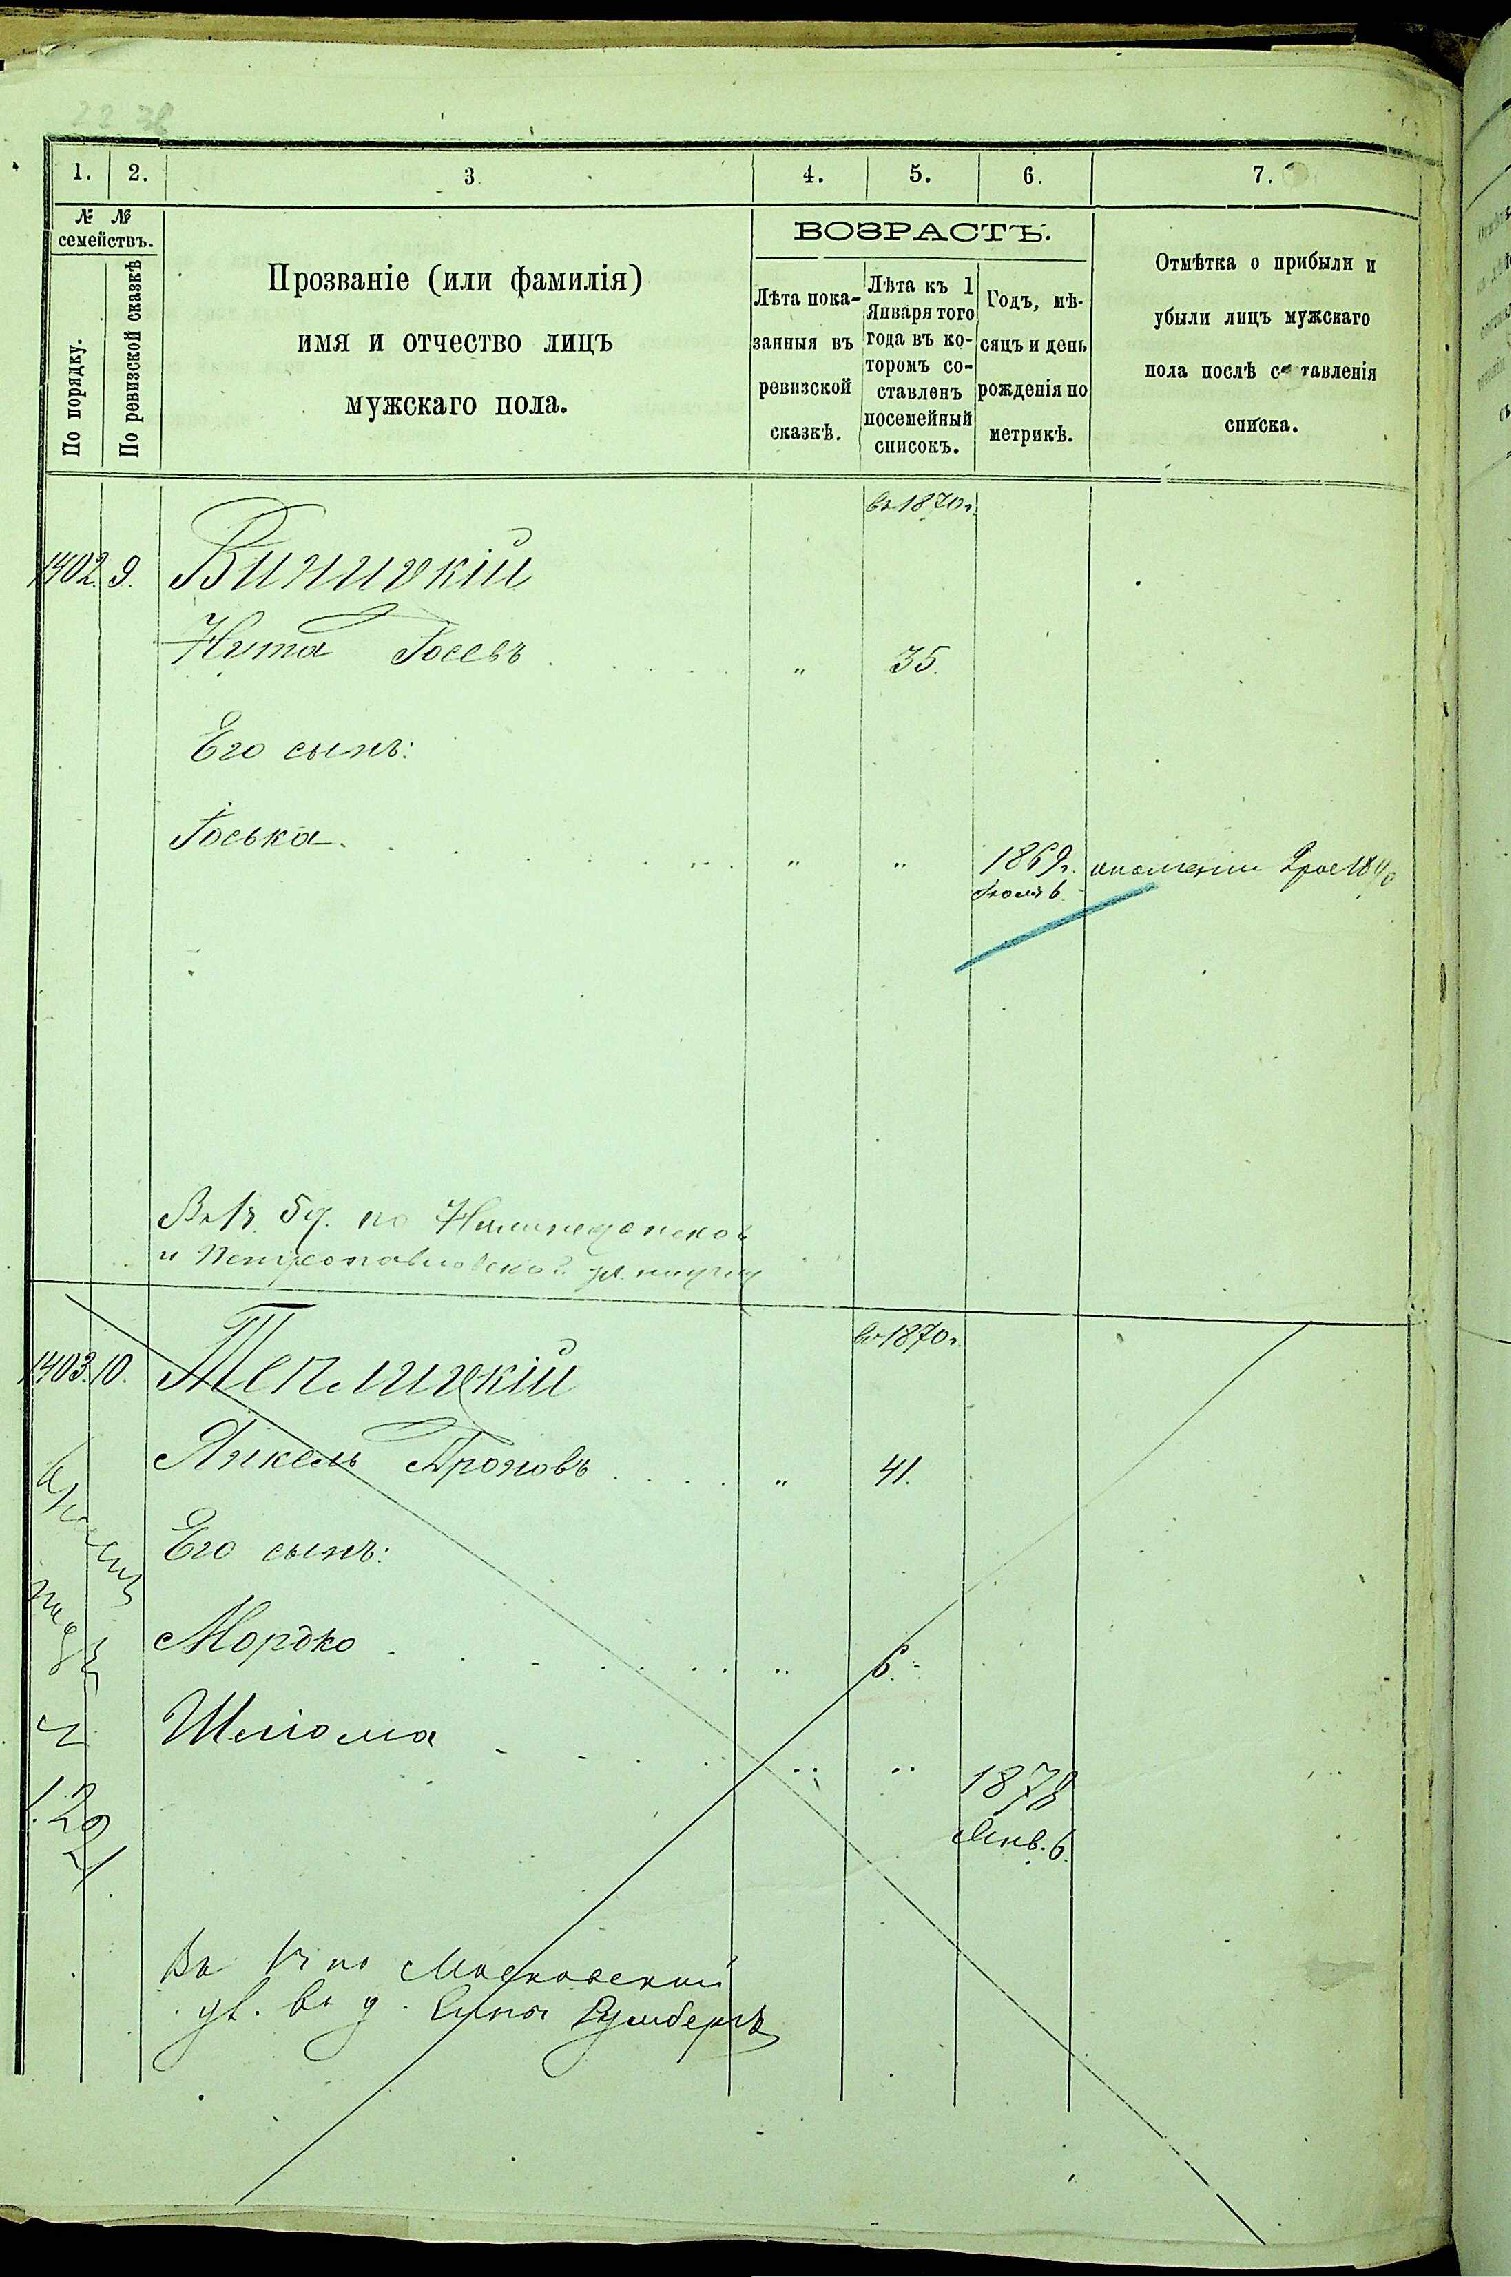 1. 2. 3. 4. 5. 6. 7.
№ № семействъ.
По порядку.
По ревизской сказкѣ
Прозваніе (или фамилія)
имя и отчество лицъ
мужскаго пола.
ВОЗРАСТЪ.
Лѣта пока-
занныя въ
ревизской
сказкѣ.
Лѣта къ 1
Января того
года въ ко-
торомъ со-
ставленъ
посемейный
списокъ.
Годъ, мѣ-
сяцъ и день
рожденія по
метрикѣ.
Отмѣтка о прибыли и
убыли лицъ мужскаго
пола послѣ составленія
списка.
въ 1870 г.
1402. 9. Виницкій
Нута Іосевъ " 35.
Его сынъ:
Іоська " " 1869 г.
Іюля 6
по
и Петропавловской
въ 1870 г.
1403. 10. Теплицкій
Янкель Ароновъ " 41.
Его сынъ:
Мордко " 6.
Шлiома " " 1878
Янв. 6.
по Московской
ул. въ д.